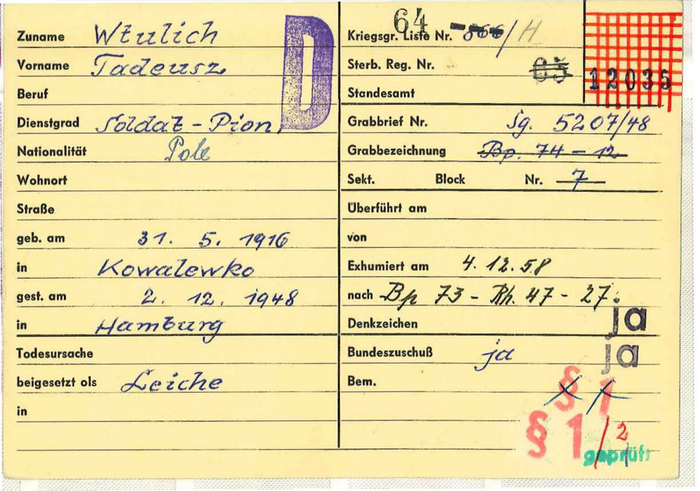 Zuname Wtulich
Vorname Tadeusz
Beruf
Dienstgrad Soldat - Pion.
Nationalität Pole
Wohnort
Straße
geb. am 31. 5. 1916
in Kowalewko
gest. am 2. 12. 1948
in Hamburg
Todesursache
beigesetzt als Leiche
in
D
64
Kriegsgr. Liste Nr. 866/H
Sterb. Reg. Nr. 65
12035
Standesamt
Grabbrief Nr. Sg. 5207/48
Grabbezeichnung Bp. 74 - 12
Sekt. Block Nr. 7
Überführt am
von
Exhumiert am 4. 12. 58
nach Bp 73 - Rh. 47 - 27.
Denkzeichen ja
Bundeszuschuß ja ja
Bem.
§ 1
§ 1/2
geprüft